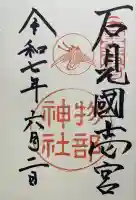 石見國壱宮
物部
神社
令和七年六月二日